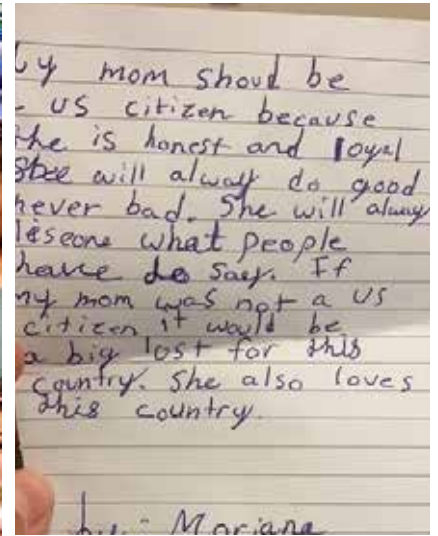 My mom shoud be
a US citizen because
she is honest and loyal
Shee will alway do good
never bad. She will alway
leseone what people
have to say. If
my mom was not a US
citizen it would be
a big lost for this
country. She also loves
this country.
by: Mariana